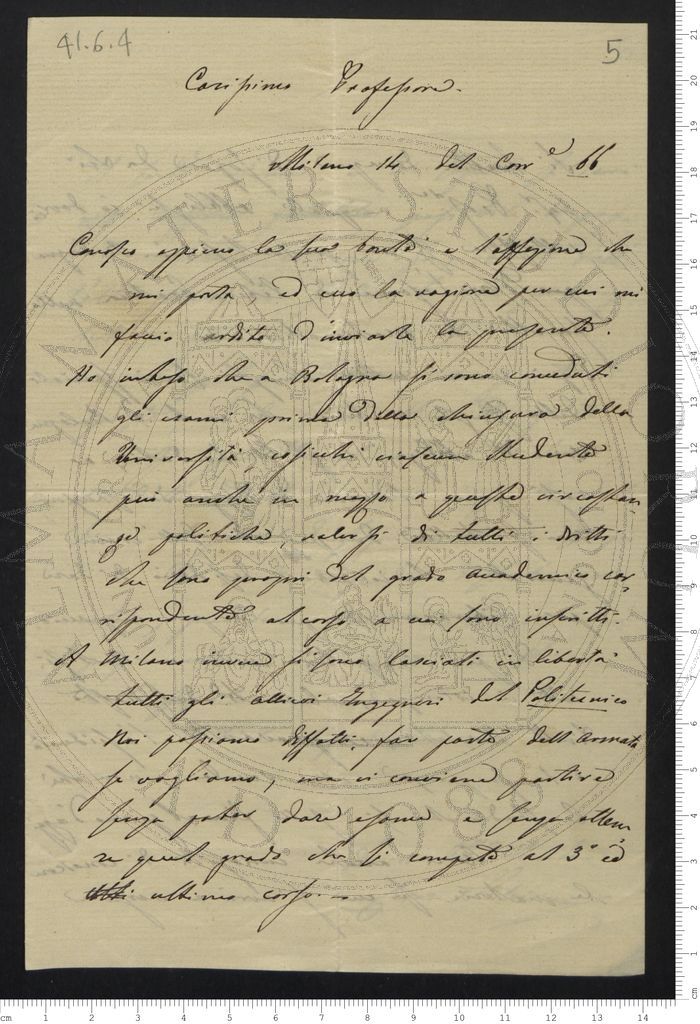 41.6.4
5
Carissimo Professore.
Milano 14 del Corr.e 66
Conosco appieno la sua bontà e l'affezione che
mi porta, ed ecco la ragione per cui mi
faccio ardito d'inviarle la presente.
Ho inteso che a Bologna si sono conceduti
gli esami prima della chiusura della
Università cosicchè ciascun studente
può anche in mezzo a queste circostan
ze politiche, valersi di tutti i dritti
che sono propri del grado accademico cor,
rispondente al corso a cui sono inscritti.
A Milano invece si sono lasciati in libertà
tutti gli allievi Ingegneri del Politecnico
Noi possiamo diffatti, far parte dell'armata
se vogliamo, ma ci conviene partire
senza poter dare esame e senza otten
re quel grado che si compete al 3° ed
ultimo corso.